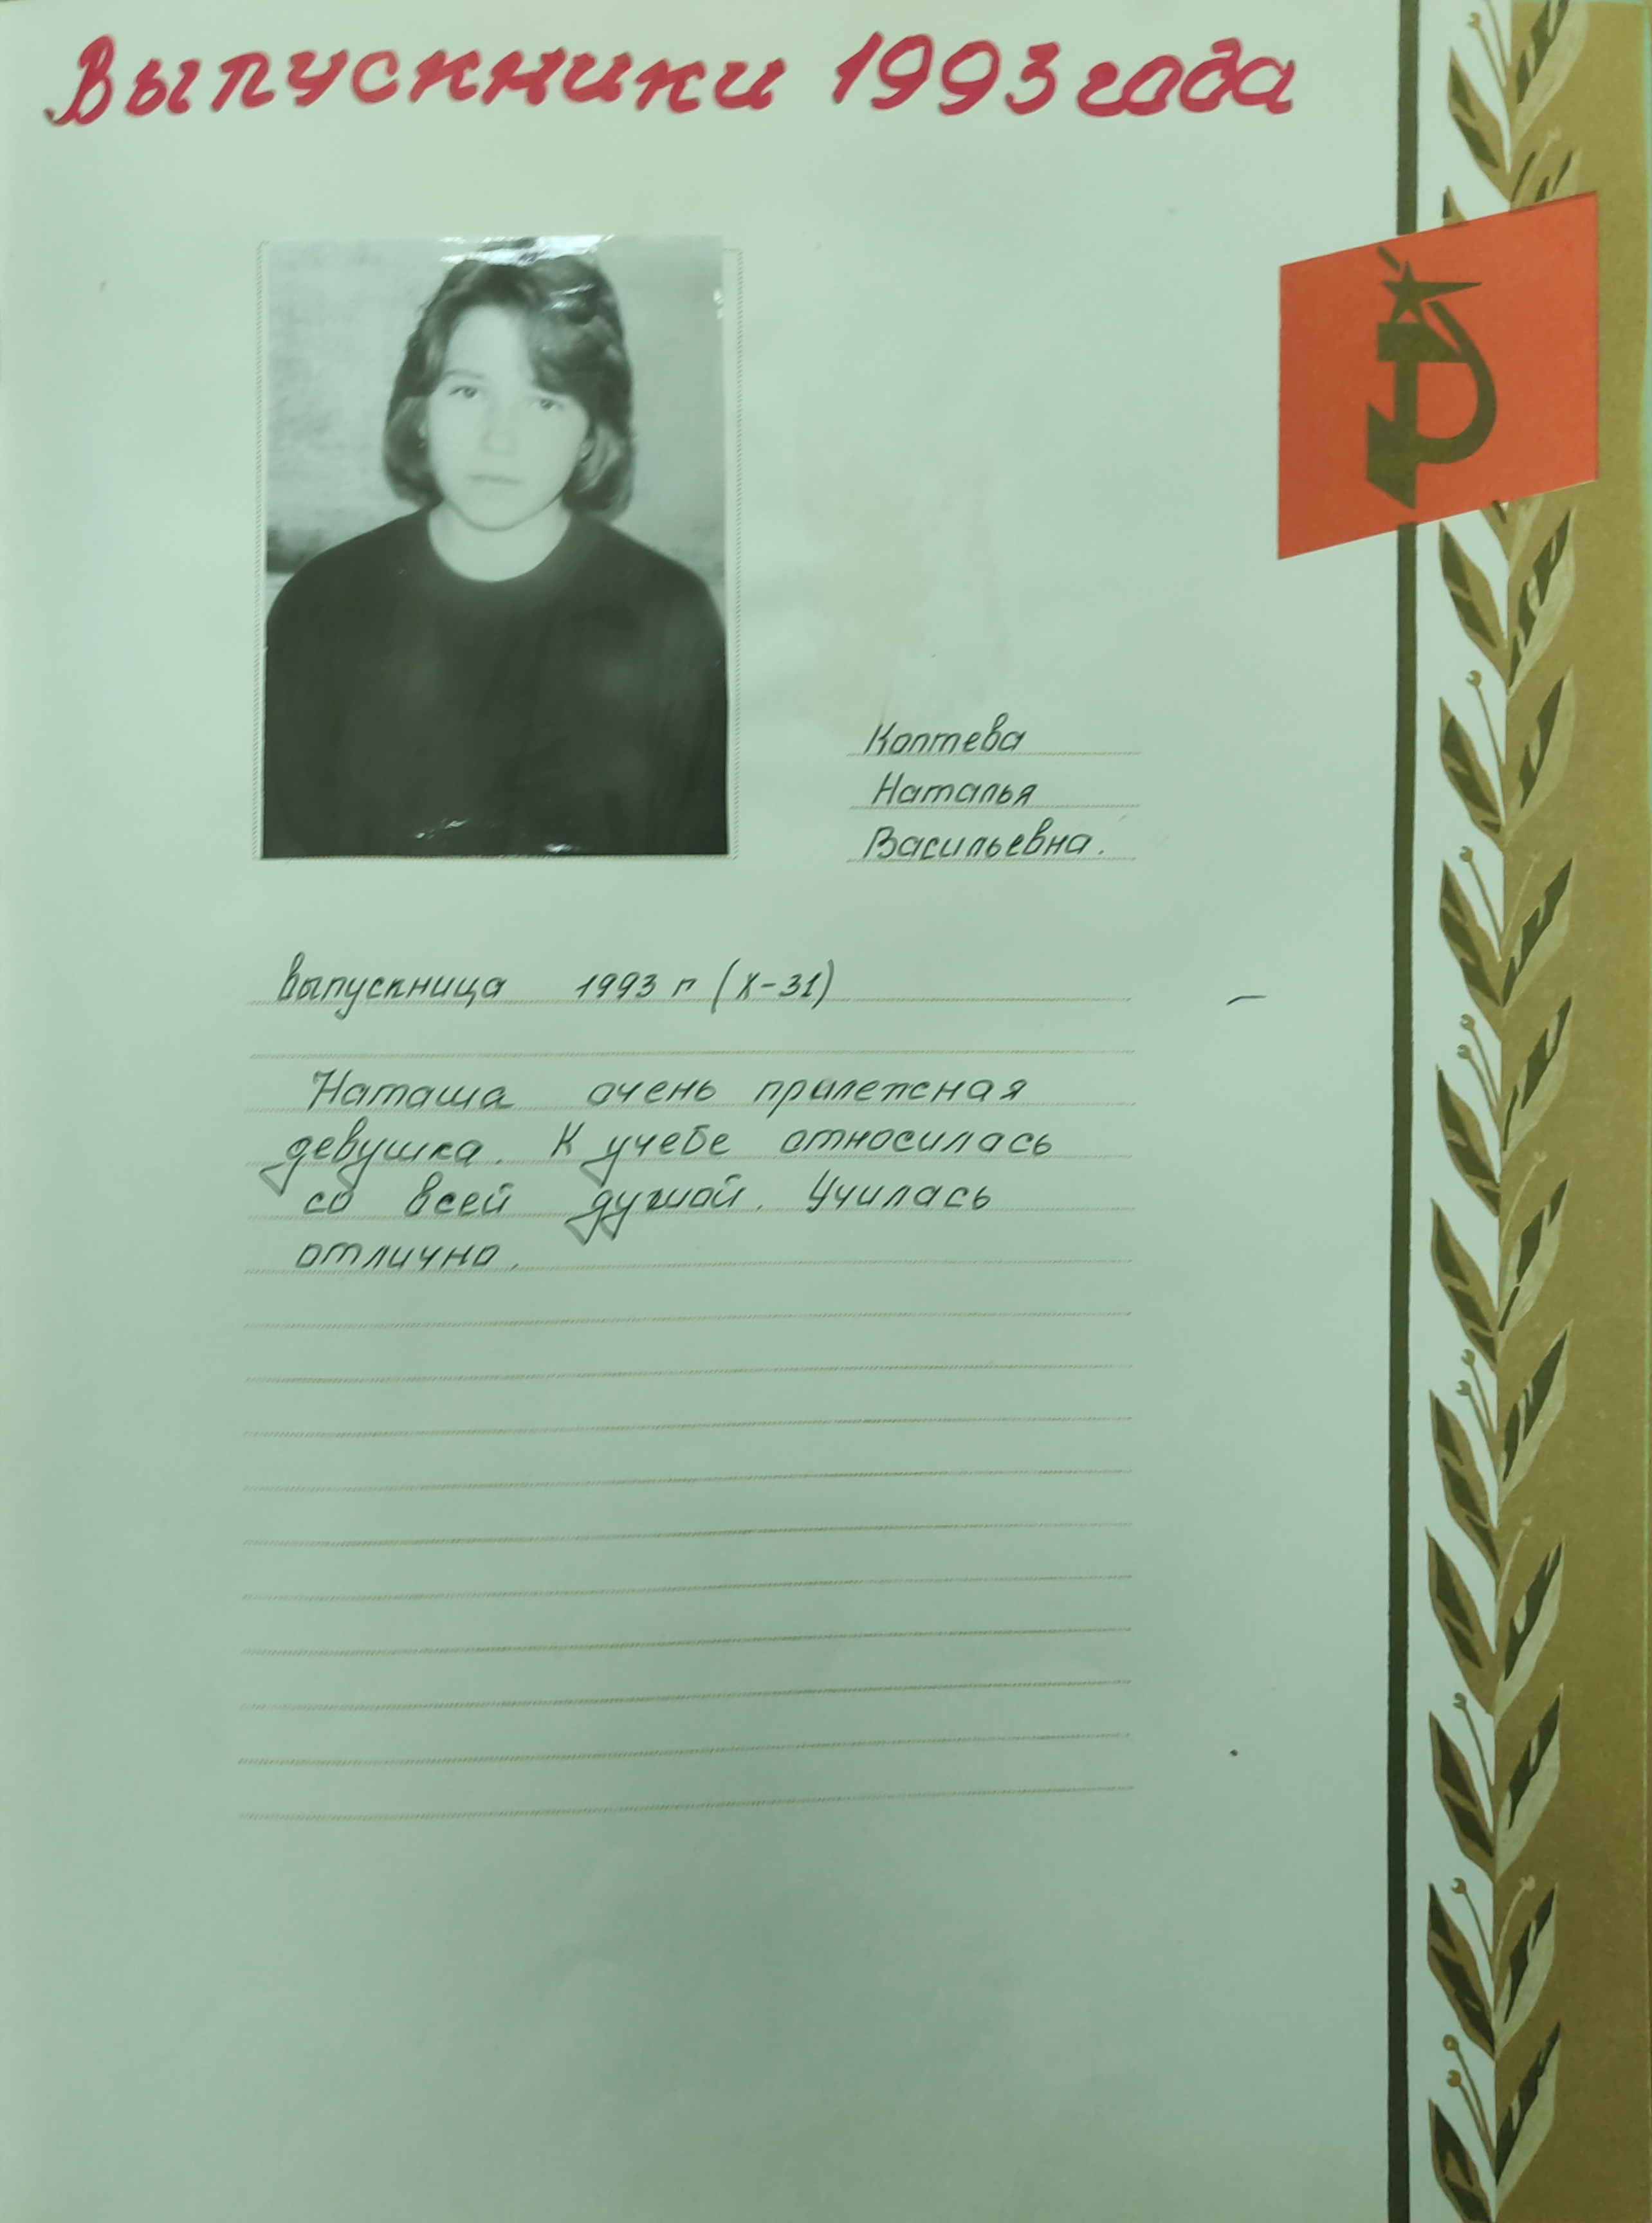 Выпускники 1993 года
Коптева
Наталья
Васильевна.
выпускница 1993 г (X-31)
Наташа очень прилежная
девушка. К учебе относилась
со всей душой. Училась
отлично.